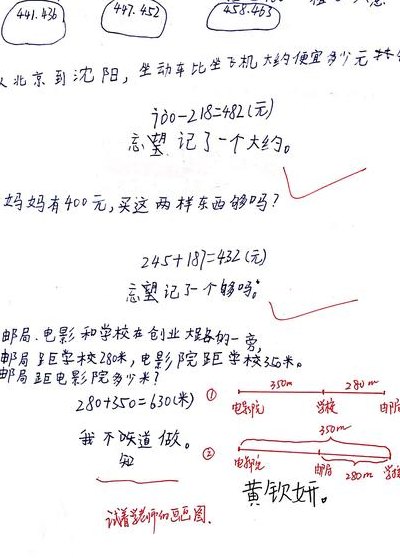 441.436
447.452
458.463
从北京到沈阳，坐动车比坐飞机大约便宜多少元
700-218=482(元)
忘望记了一个大约。
妈妈有400元,买这两样东西够吗?
245+187=432(元)
忘望记了一个够吗。
邮局、电影和学校在创业大路的一旁,
邮局距学校280米,电影院距学校350米。
邮局距电影院多少米?
280+350=630(米)
我不味道做。
知
① 350m 280m
电影院 学校 邮局
350m
② 电影院 邮局 280m 学校
黄钦妍。
试着学老师的画画图.